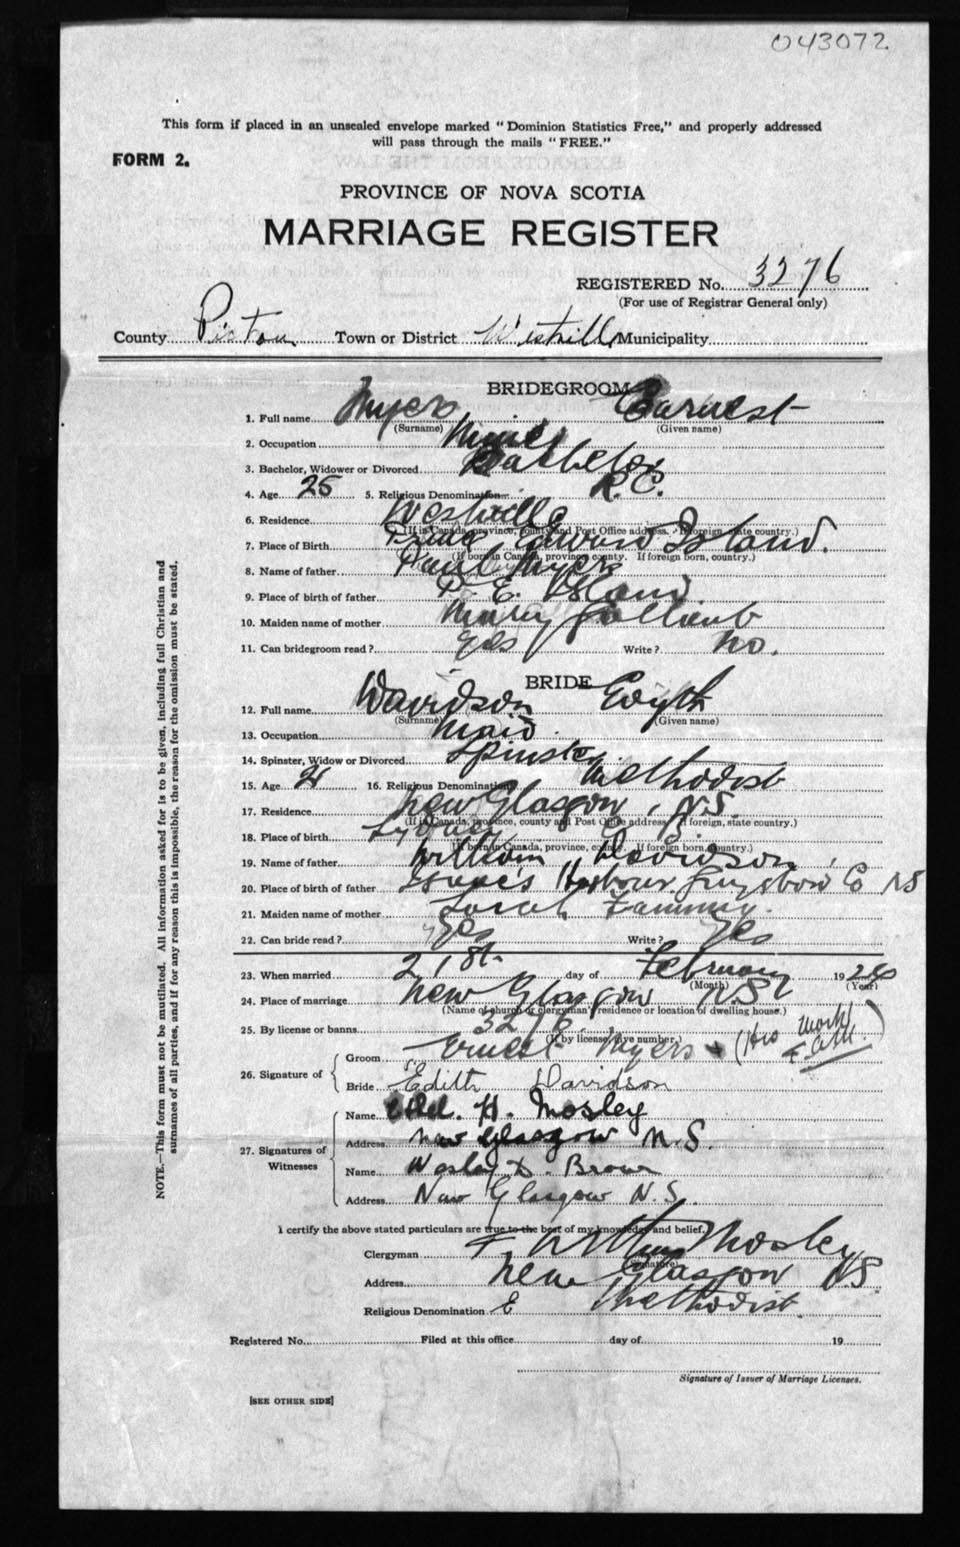 043072
This form if placed in an unsealed envelope marked "Dominion Statistics Free," and properly addressed
will pass through the mails "FREE."
FORM 2.
PROVINCE OF NOVA SCOTIA
MARRIAGE REGISTER
REGISTERED No. 3276
(For use of Registrar General only)
County Pictou Town or District Westville Municipality
BRIDEGROOM
1. Full name Myers Earnest
(Surname) (Given name)
2. Occupation Miner
3. Bachelor, Widower or Divorced Bachelor
4. Age 25 5. Religious Denomination R.C.
6. Residence Westville
(If in Canada, province, county and Post Office address. If foreign, state country.)
7. Place of Birth Prince Edward Island.
(If born in Canada, province, county. If foreign born, country.)
8. Name of father Paul Myers
9. Place of birth of father P. E. Island
10. Maiden name of mother Mary Gallant
11. Can bridegroom read? yes Write? No.
BRIDE
12. Full name Davidson Edyth
(Surname) (Given name)
13. Occupation Maid
14. Spinster, Widow or Divorced Spinster
15. Age 21 16. Religious Denomination Methodist
17. Residence New Glasgow, N.S.
(If in Canada, province, county and Post Office address. If foreign, state country.)
18. Place of birth Sydney
(If born in Canada, province, county. If foreign born, country.)
19. Name of father William Davidson
20. Place of birth of father Isaac's Harbour Guysboro Co NS
21. Maiden name of mother Sarah
22. Can bride read? yes Write? yes
23. When married 21st day of February 19
(Month) (Year)
24. Place of marriage New Glasgow N.S.
(Name of church or clergyman's residence or location of dwelling house.)
25. By license or banns 3276
(If by license, give number.)
26. Signature of
Groom Ernest Myers x (His mark)
Bride Edith Davidson
27. Signatures of Witnesses
Name H. Mosley
Address New Glasgow N.S.
Name Wesley D. Brown
Address New Glasgow N.S.
I certify the above stated particulars are true to the best of my knowledge and belief.
Clergyman F. Mosley
(Signature)
Address New Glasgow N.S.
Religious Denomination Methodist
Registered No. Filed at this office day of 19
Signature of Issuer of Marriage Licenses.
[SEE OTHER SIDE]
NOTE.—This form must not be mutilated. All information asked for is to be given, including full Christian and
surnames of all parties, and if for any reason this is impossible, the reason for the omission must be stated.